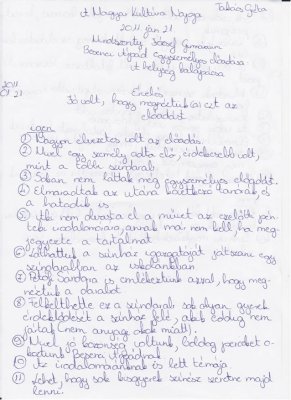 Takács Gitta
A Magyar Kultúra Napja
2011. jan. 21
Mindszenty József Gimnázium
Besenczi Árpád egyszemélyes előadása
A helység kalapácsa
2011
01 21
Érvelés
Jó volt, hogy megnéztük (a) ezt az
előadást.
igen
① Nagyon élvezetes volt az előadás.
② Mivel egy személy adta elő, érdekesebb volt,
mint a többi színdarab.
③ Sokan nem láttak még egyszemélyes előadást.
④ Elmaradtak az utána következő tanórák, és
a hatodik is
⑤ Aki nem olvasta el a művet az ezelőtti
irodalomóra, annak már nem kell, ha meg-
jegyezte a tartalmat
⑥ Láthattuk a színház igazgatóját játszani egy
színdarabban az iskolánkban
⑦ Petőfi Sándorra is emlékeztünk azzal, hogy meg-
néztük a darabot
⑧ Felkelthette ez a színdarab sok olyan gyerek
érdeklődését a színház felé, akik eddig nem
jártak (nem anyagi okok miatt).
⑨ Mivel jó közönség voltunk, boldog perceket o-
koztunk Besenczi Árpádnak
⑩ Az irodalomóránknak és lett témája
⑪ Lehet, hogy sok kisgyerek színész szeretne majd
lenni.